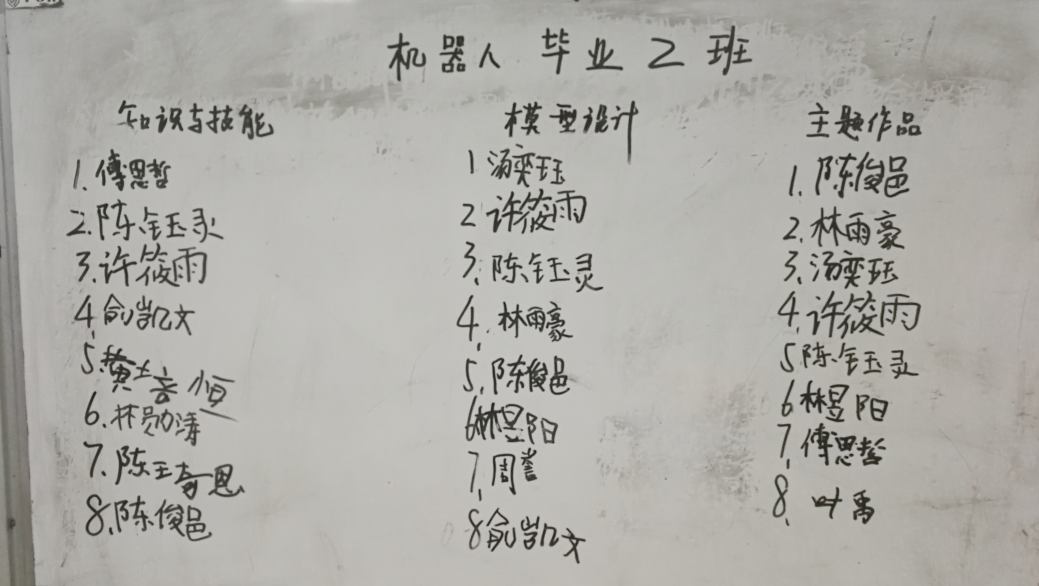 机器人 毕业2班
知识与技能
1.傅思哲
2.陈钰灵
3.许筱雨
4.俞凯文
5.黄培恒
6.林勋涛
7.陈王奇恩
8.陈俊邑
模型设计
1汤奕珏
2许筱雨
3.陈钰灵
4.林雨豪
5.陈俊邑
6林昱阳
7.周
8俞凯文
主题作品
1.陈俊邑
2.林雨豪
3.汤奕珏
4.许筱雨
5陈钰灵
6林昱阳
7.傅思哲
8.叶禹